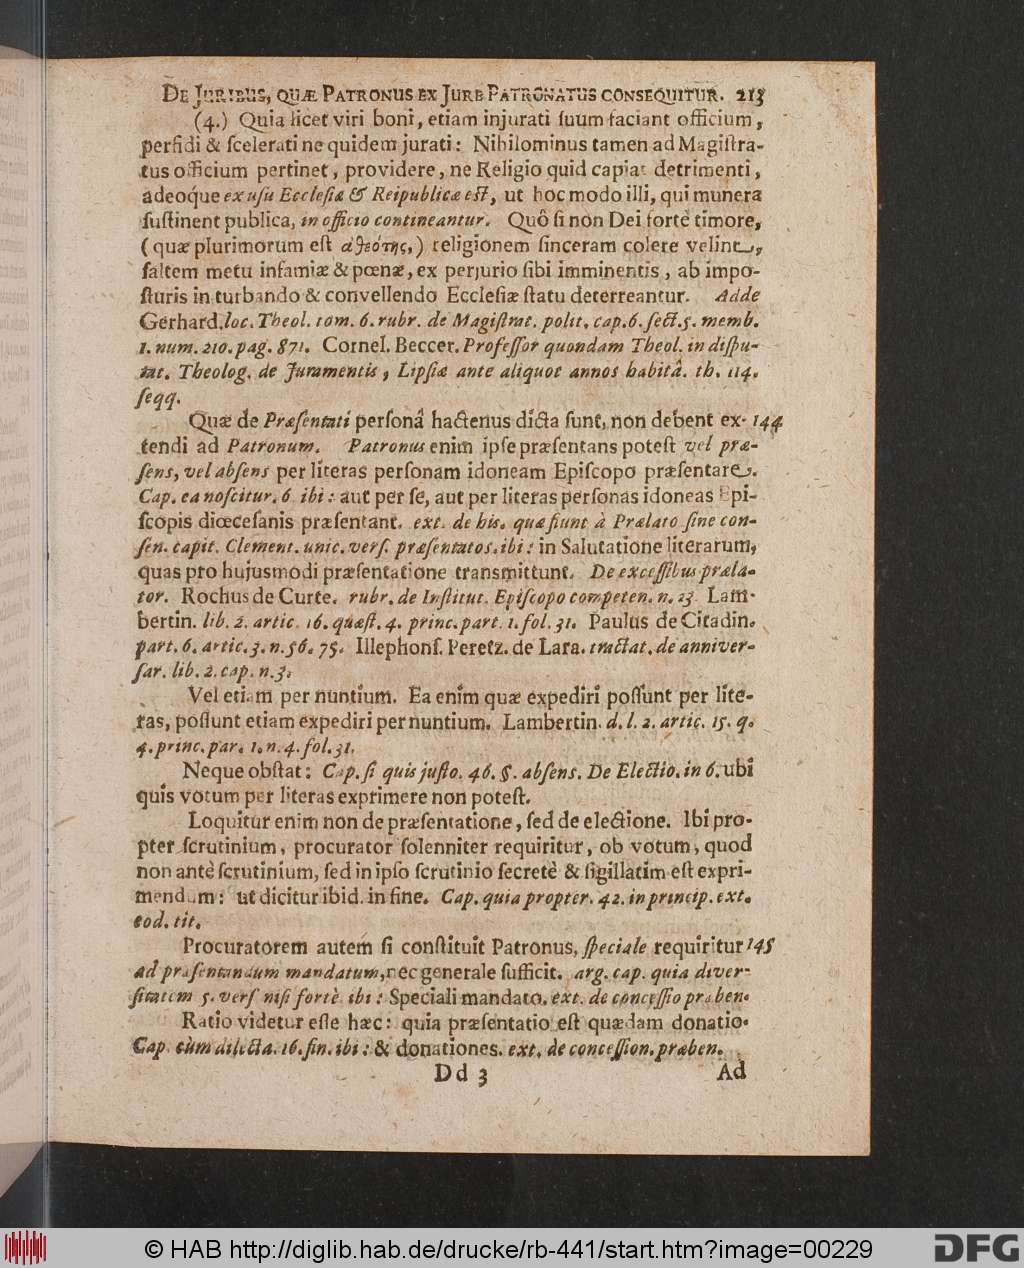 DE JURIBUS, QUÆ PATRONUS EX JURE PATRONATUS CONSEQUITUR. 213
(4.) Quia licet viri boni, etiam injurati ſuum faciant officium,
perfidi & ſcelerati ne quidem jurati: Nihilominus tamen ad Magiſtra-
tus officium pertinet, providere, ne Religio quid capiat detrimenti,
adeoque ex uſu Eccleſiæ & Reipublicæ eſt, ut hoc modo illi, qui munera
ſuſtinent publica, in officio contineantur. Quô ſi non Dei fortè timore,
(quæ plurimorum eſt ἀθεότης,) religionem ſinceram colere velint,
ſaltem metu infamiæ & pœnæ, ex perjurio ſibi imminentis, ab impo-
ſturis in turbando & convellendo Eccleſiæ ſtatu deterreantur. Adde
Gerhard. loc. Theol. tom. 6. rubr. de Magiſtrat. polit. cap. 6. ſect. 5. memb.
1. num. 210. pag. 871. Cornel. Beccer. Profeſſor quondam Theol. in diſpu-
tat. Theolog. de Juramentis, Lipſiæ ante aliquot annos habitâ. th. 114.
ſeqq.
Quæ de Præſentati perſonâ hactenus dicta ſunt, non debent ex- 144
tendi ad Patronum. Patronus enim ipſe præſentans poteſt vel præ-
ſens, vel abſens per literas perſonam idoneam Epiſcopo præſentare.
Cap. ea noſcitur. 6. ibi: aut per ſe, aut per literas perſonas idoneas Epi-
ſcopis diœceſanis præſentant. ext. de his. quæ fiunt à Prælato ſine con-
ſen. capit. Clement. unic. verſ. præſentatos. ibi: in Salutatione literarum,
quas pro hujusmodi præſentatione transmittunt. De exceſſibus præla-
tor. Rochus de Curte. rubr. de Inſtitut. Epiſcopo competen. n. 23. Lam-
bertin. lib. 2. artic. 16. quæſt. 4. princ. part. 1. fol. 31. Paulus de Citadin.
part. 6. artic. 3. n. 56. 75. Illephonſ. Peretz. de Lara. tractat. de anniver-
ſar. lib. 2. cap. n. 3.
Vel etiam per nuntium. Ea enim quæ expediri poſſunt per lite-
ras, poſſunt etiam expediri per nuntium. Lambertin. d. l. 2. artic. 15. q.
4. princ. par. 1. n. 4. fol. 31.
Neque obſtat: Cap. ſi quis juſto. 46. §. abſens. De Electio. in 6. ubi
quis votum per literas exprimere non poteſt.
Loquitur enim non de præſentatione, ſed de electione. Ibi pro-
pter ſcrutinium, procurator ſolenniter requiritur, ob votum, quod
non antè ſcrutinium, ſed in ipſo ſcrutinio ſecretè & ſigillatim eſt expri-
mendum: ut dicitur ibid. in fine. Cap. quia propter. 42. in princip. ext.
eod. tit.
Procuratorem autem ſi conſtituit Patronus, ſpeciale requiritur 145
ad præſentandum mandatum, nec generale ſufficit. arg. cap. quia diver-
ſitatem 5. verſ niſi fortè ibi: Speciali mandato. ext. de conceſſio præben.
Ratio videtur eſſe hæc: quia præſentatio eſt quædam donatio.
Cap. cùm dilecta. 16. fin. ibi: & donationes. ext. de conceſſion. præben.
Dd 3 Ad
© HAB http://diglib.hab.de/drucke/rb-441/start.htm?image=00229
DFG